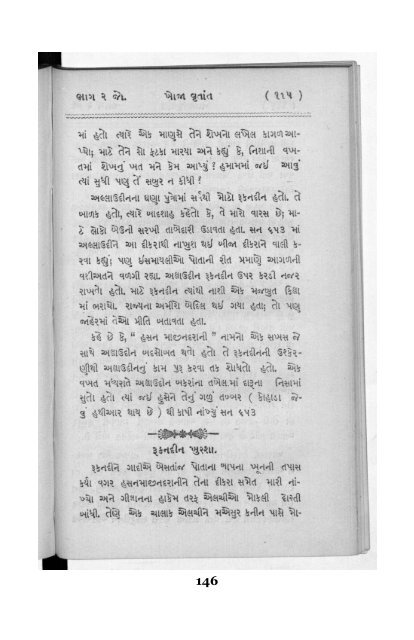 ભાગ ૨ જો. ખોજા વૃતાંત ( ૧૧૫ )
માં હતો ત્યારે એક માણુસે તેને શેખનો લખેલ કાગળ આ-
પ્યો; માટે તેને શો ફટકા મારયા અને કહ્યું કે, નિશાની વખ-
તમાં શેખનું ખત મને કેમ આપ્યું ? હમામમાં જઈ આવું
ત્યાં સુધી પણુ તેં સબુર ન કીધી !
અલ્લાઉદીનના ઘણા પુત્રોમાં સર્વેથી મોટો રૂકનદીન હતો. તે
બાળક હતો, ત્યારે બાદશાહ કહેતો કે, તે મારો વારસ છે; મા-
ટે લોકો બેઉની સરખી તાબેદારી ઉઠાવતા હતા. સન ૬૫૩ માં
અલ્લાઉદીને આ દીકરાથી નાખુશ થઈ બીજા દીકરાને વાલી ક-
રવા કહ્યું; પણુ ઈસમાયલીઓ પોતાની રીત પ્રમાણે આગળની
વશીઅતને વળગી રહ્યા. અલાઉદીન રૂકનદીન ઉપર કરડી નજર
રાખતો હતો. માટે રૂકનદીન ત્યાંથી નાશી એક મજબુત કિલા
માં ભરાયો. રાજ્યના અમીરો બેદિલ થઈ ગયા હતા; તો પણુ
જાહેરમાં તેઓ પ્રીતિ બતાવતા હતા.
કહે છે કે, " હસન માજીનદરાની " નામનો એક સખસ જે
સાથે અલાઉદીન બદસોબત થયો હતો તે રૂકનદીનની ઉશ્કેર-
ણીથી અલાઉદીનનું કામ પુરૂં કરવા તક શોધતો હતો. એક
વખત મધરાતે અલાઉદીન બકરાંના તબેલામાં દારૂના નિસામાં
સુતો હતો ત્યાં જઈ હુસેને તેનું ગળું તબ્બર ( કોહાડા જે-
વું હથીઆર થાય છે ) થી કાપી નાંખ્યું સન ૬૫૩
રૂકનદીન ખુરશા.
રૂકનદીને ગાદીએ બેસતાંજ પોતાના બાપના ખુનની તપાસ
કર્યા વગર હસનમાજીનદરાનીને તેના દીકરા સમેત મારી નાં-
ખ્યો અને ગીલાનના હાકેમ તરફ એલચીઓ મોકલી દોસ્તી
બાંધી. તેણે એક ચાલાક એલચીને મએસુર કનીન પાસે મો-
146